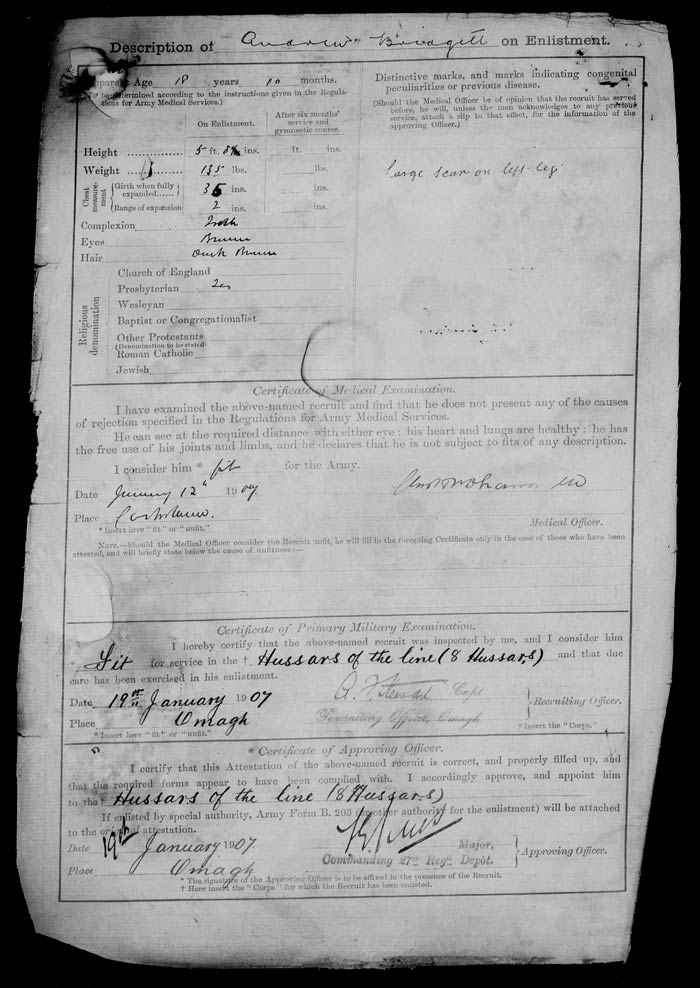 Description of Andrew Bridgett on Enlistment.
Apparent Age 18 years 10 months.
(To be determined according to the instructions given in the Regulations for Army Medical Services.)
Distinctive marks, and marks indicating congenital
peculiarities or previous disease.
(Should the Medical Officer be of opinion that the recruit has served
before, he will, unless the man acknowledges to any previous
service, attach a slip to that effect, for the information of the
approving Officer.)
Large scar on left leg
On Enlistment.
After six months'
service and
gymnastic course.
Height 5 ft. ins. ft. ins.
Weight 135 lbs. lbs.
Chest measurement
Girth when fully expanded 36 ins. ins.
Range of expansion 2 ins. ins.
Complexion Fresh
Eyes Brown
Hair Dark Brown
Religious denomination
Church of England
Presbyterian
Wesleyan
Baptist or Congregationalist
Other Protestants
(Denomination to be stated)
Roman Catholic
Jewish
Certificate of Medical Examination.
I have examined the above-named recruit and find that he does not present any of the causes
of rejection specified in the Regulations for Army Medical Services.
He can see at the required distance with either eye: his heart and lungs are healthy: he has
the free use of his joints and limbs, and he declares that he is not subject to fits of any description.
I consider him * fit for the Army.
Date January 12th 1907
Place Cookstown
Medical Officer.
* Insert here "fit" or "unfit."
NOTE.—Should the Medical Officer consider the Recruit unfit, he will fill in the foregoing Certificate only in the case of those who have been
attested, and will briefly state below the cause of unfitness:—
Certificate of Primary Military Examination.
I hereby certify that the above-named recruit was inspected by me, and I consider him
* Fit for service in the † Hussars of the line (8 Hussars) and that due
care has been exercised in his enlistment.
Date 19th January 1907 Capt
Recruiting Officer.
Place Omagh Recruiting Officer, Omagh
* Insert here "fit" or "unfit."
† Insert the "Corps."
* Certificate of Approving Officer.
I certify that this Attestation of the above-named recruit is correct, and properly filled up, and
that the required forms appear to have been complied with. I accordingly approve, and appoint him
to the † Hussars of the line (8 Hussars)
If enlisted by special authority, Army Form B. 203 (or other authority for the enlistment) will be attached
to the original attestation.
Date 19th January 1907. Major,
Place Omagh Commanding 27th Regtl Depôt.
Approving Officer.
* The signature of the Approving Officer is to be affixed in the presence of the Recruit.
† Here insert the "Corps" for which the Recruit has been enlisted.